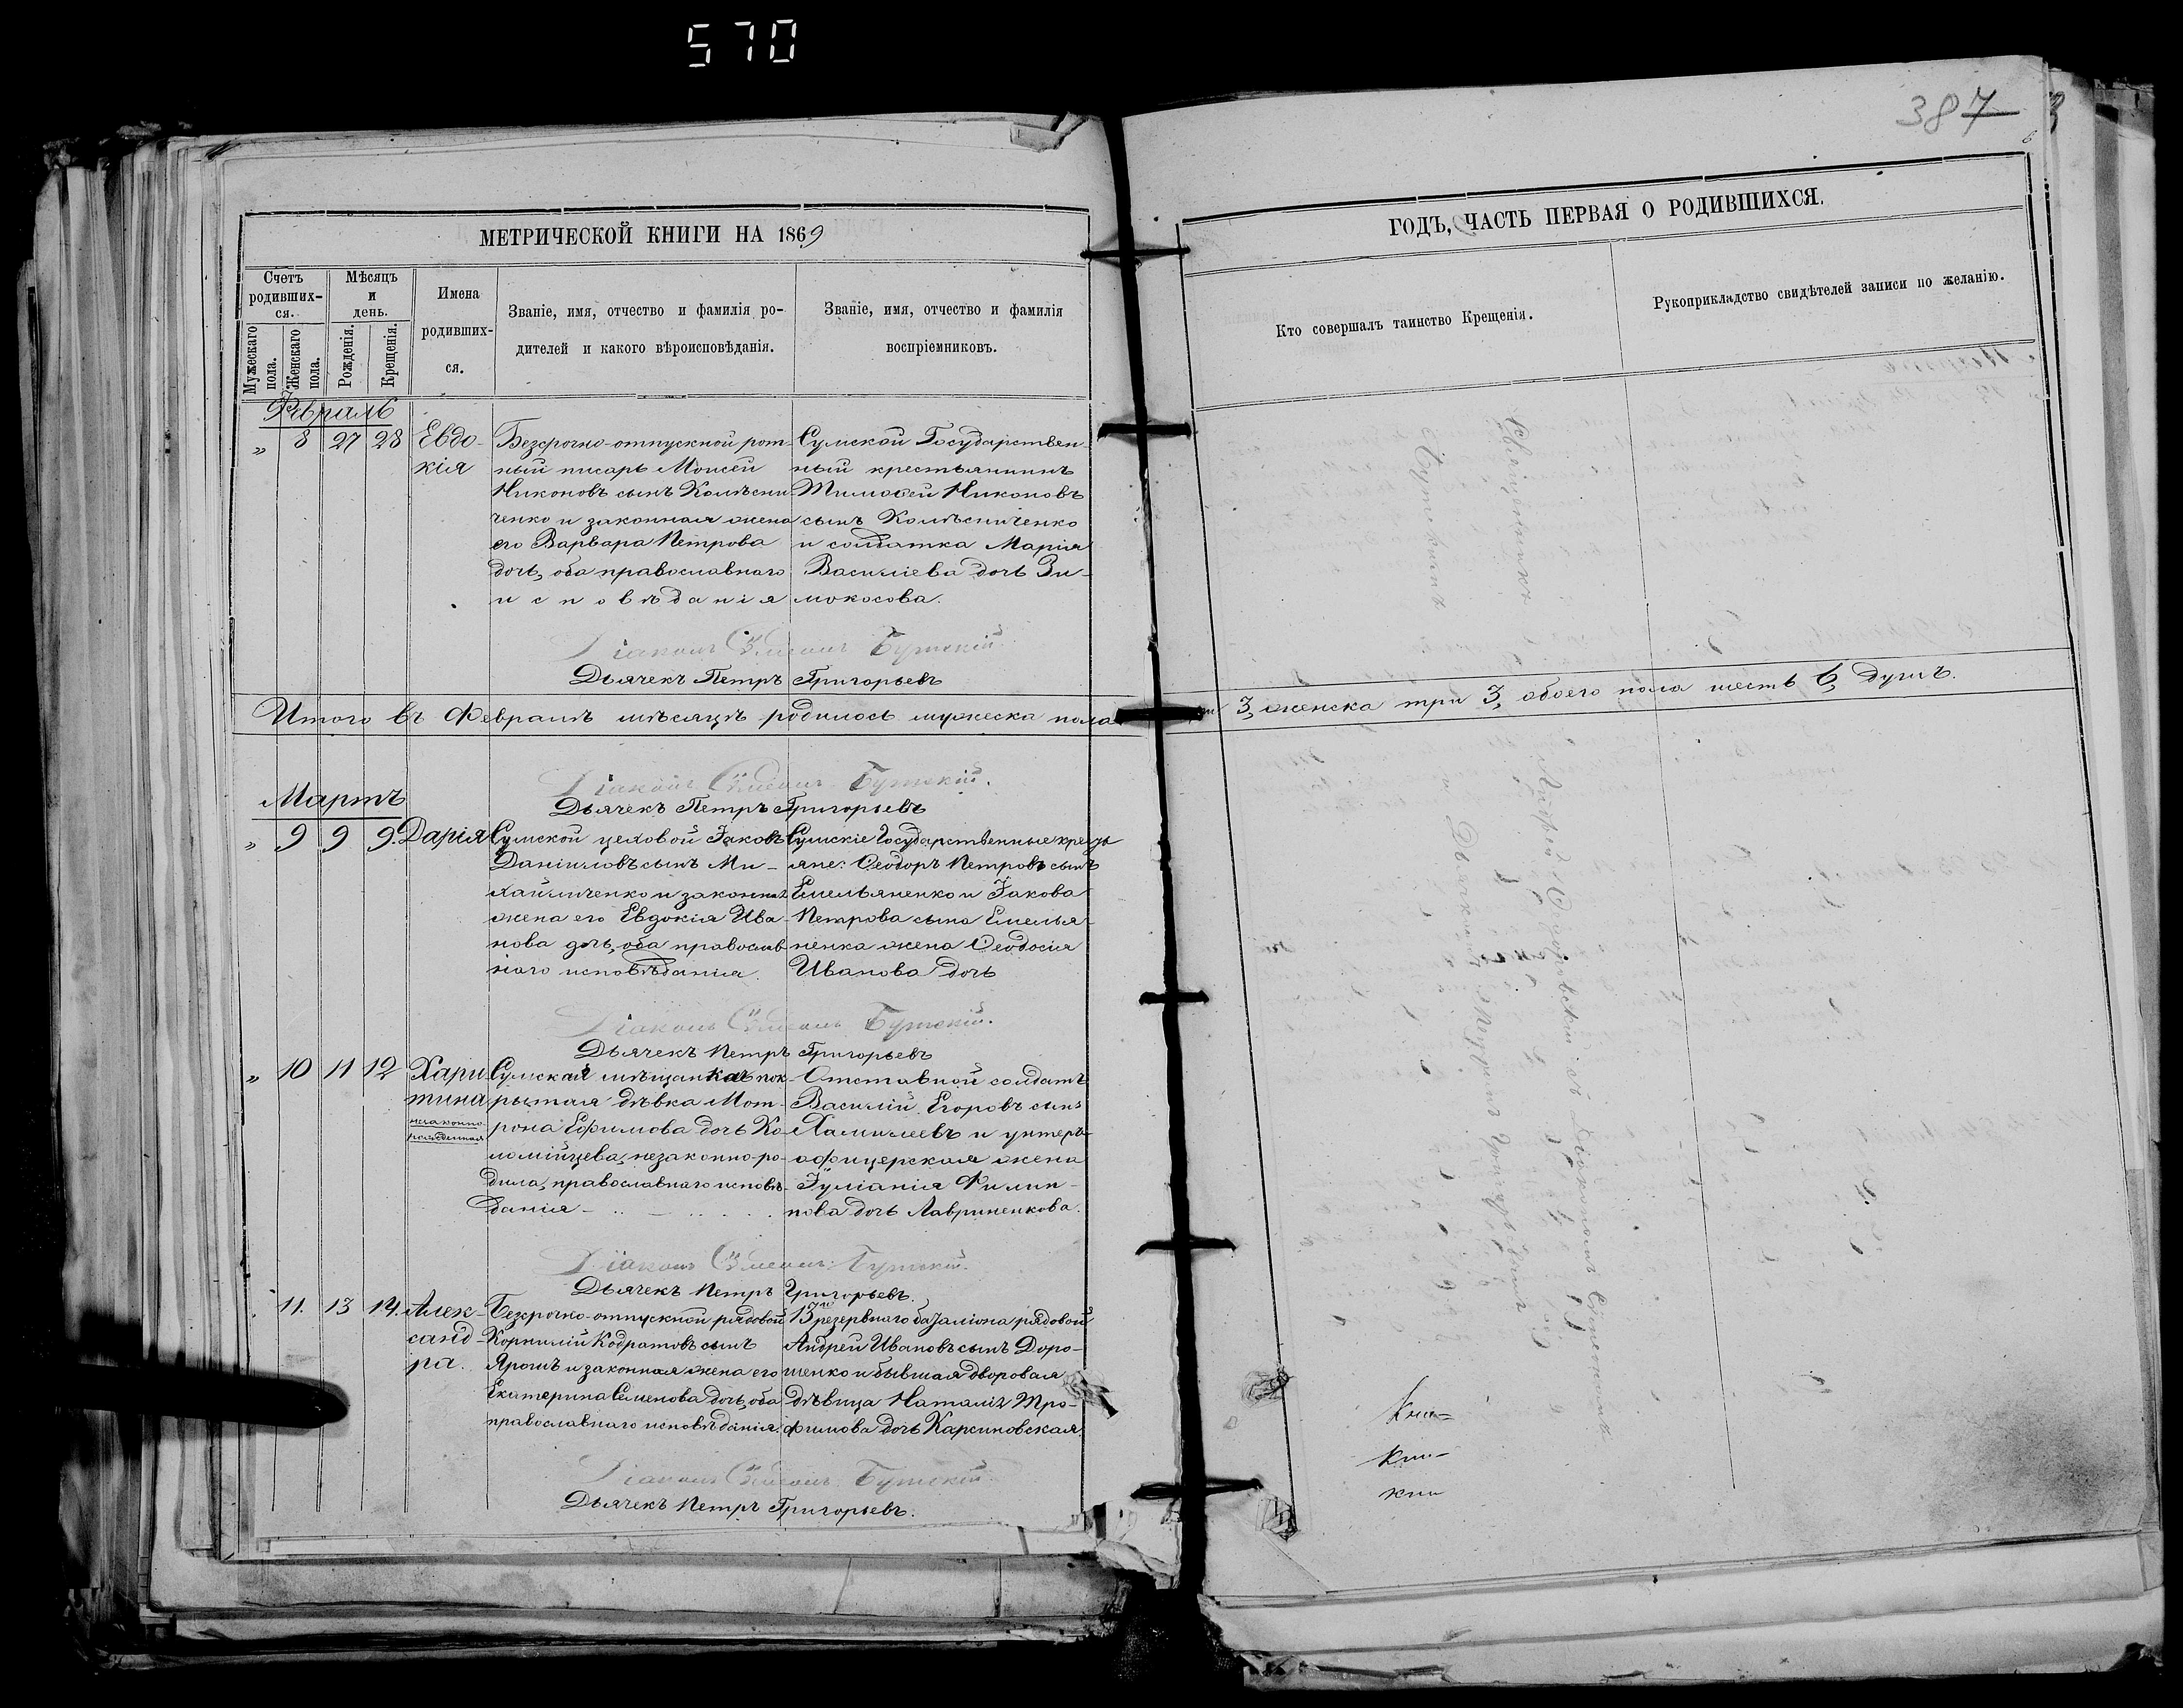 570
387
МЕТРИЧЕСКОЙ КНИГИ НА 1869
Счетъ родивших-ся.
Мужескаго пола.
Женскаго пола.
Мѣсяцъ и день.
Рожденія.
Крещенія.
Имена родивших-ся.
Званіе, имя, отчество и фамилія ро-
дителей и какого вѣроисповѣданія.
Званіе, имя, отчество и фамилія
воспріемниковъ.
Февраль
" 8 27 28 Евдо-
кія
Безсрочно-отпускной рот-
ный писарь Моисей
Никоновъ сынъ Колѣсни-
ченко и законная жена
его Варвара Петрова
дочь, оба православнаго
исповѣданія
Сумской Государствен-
ный крестьянинъ
Тимофей Никоновъ
сынъ Колѣсниченко
и солдатка Марія
Василіева дочь Зи-
мокосова.
Діаконъ Симеонъ
Дьячекъ Петръ Григорьевъ
Итого въ Февралѣ мѣсяцѣ родилось мужеска пола три 3, женска три 3, обоего пола шесть 6, душъ.
Діаконъ Симеонъ
Дьячекъ Петръ Григорьевъ
Мартъ
" 9 9 9. Дарія
Сумской цеховой Іаковъ
Даніиловъ сынъ Ми-
хайличенко и законная
жена его Евдокія Ива-
нова дочь, оба православ
наго исповѣданія.
Сумскіе Государственные кресть
яне: Ѳеодоръ Петровъ сынъ
Емельяненко и Іакова
Петрова сына Емелья-
ненка жена Ѳеодосія
Иванова дочь
Діаконъ Симеонъ
Дьячекъ Петръ Григорьевъ
" 10 11 12 Хари-
тина
незаконно-
рожденная
Сумская мѣщанка пок-
рытая дѣвка Мот-
рона Ефимова дочь Ко-
ломійцева, незаконно-ро-
дила, православнаго исповѣ-
данія
Отставной солдатъ
Василій Егоровъ сынъ
Халилеевъ и унтеръ-
офицерская жена
Іуліанія Филип-
пова дочь Лавриненкова.
Діаконъ Симеонъ
Дьячекъ Петръ Григорьевъ.
11. 13 14. Алек-
санд-
ра.
Безсрочно-отпускной рядовой
Корнилій Кодратовъ сынъ
Ярошъ и законная жена его
Екатерина Семенова дочь, оба
православнаго исповѣданія.
13го резервнаго баталіона рядовой
Андрей Ивановъ сынъ Доро-
шенко и бывшая дворовая
дѣвица Наталія Тро-
фимова дочь Карсиновская.
Діаконъ Симеонъ
Дьячекъ Петръ Григорьевъ.
ГОДЪ, ЧАСТЬ ПЕРВАЯ О РОДИВШИХСЯ.
Кто совершалъ таинство Крещенія.
Рукоприкладство свидѣтелей записи по желанію.